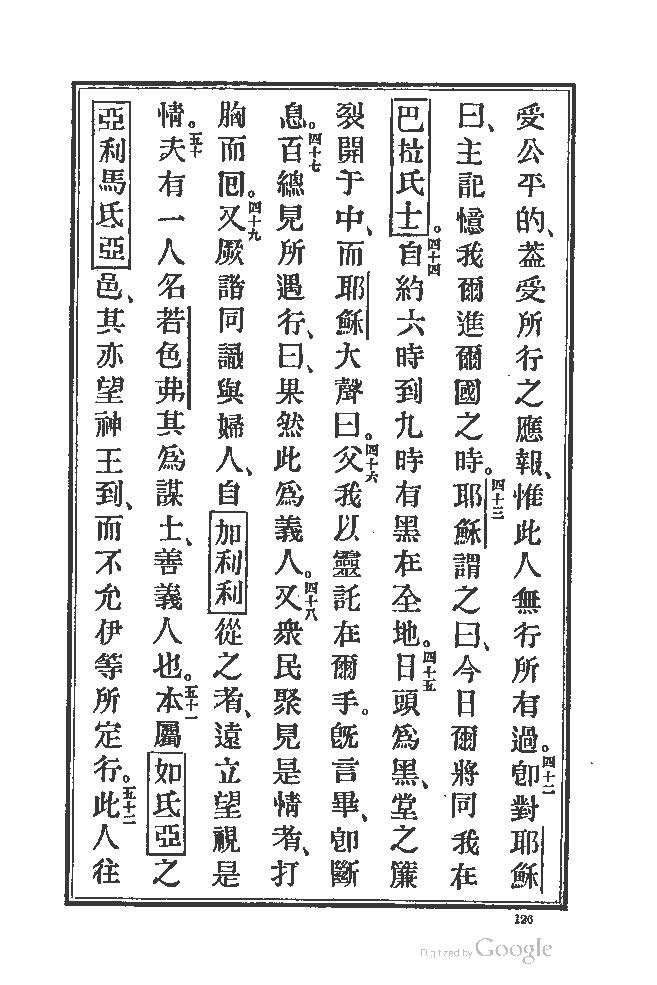 受公平的、葢受所行之應報、惟此人無行所有過。四十二卽對耶穌
曰、主記憶我爾進爾國之時。四十三耶穌謂之曰、今日爾將同我在
巴拉氏士。四十四自約六時到九時有黑在全地。四十五日頭爲黑、堂之簾
裂開于中、而耶穌大聲曰。四十六父我以靈託在爾手。旣言畢、卽斷
息。四十七百總見所遇行、曰、果然此爲義人。四十八又衆民聚見是情者、打
胸而囘。四十九又厥諧同識與婦人、自加利利從之者、遠立望視是
情。五十夫有一人名若色弗其爲謀士、善義人也。五十一本屬如氐亞之
亞利馬氐亞邑、其亦望神王到、而不允伊等所定行。五十二此人往
126
Digitized by Google